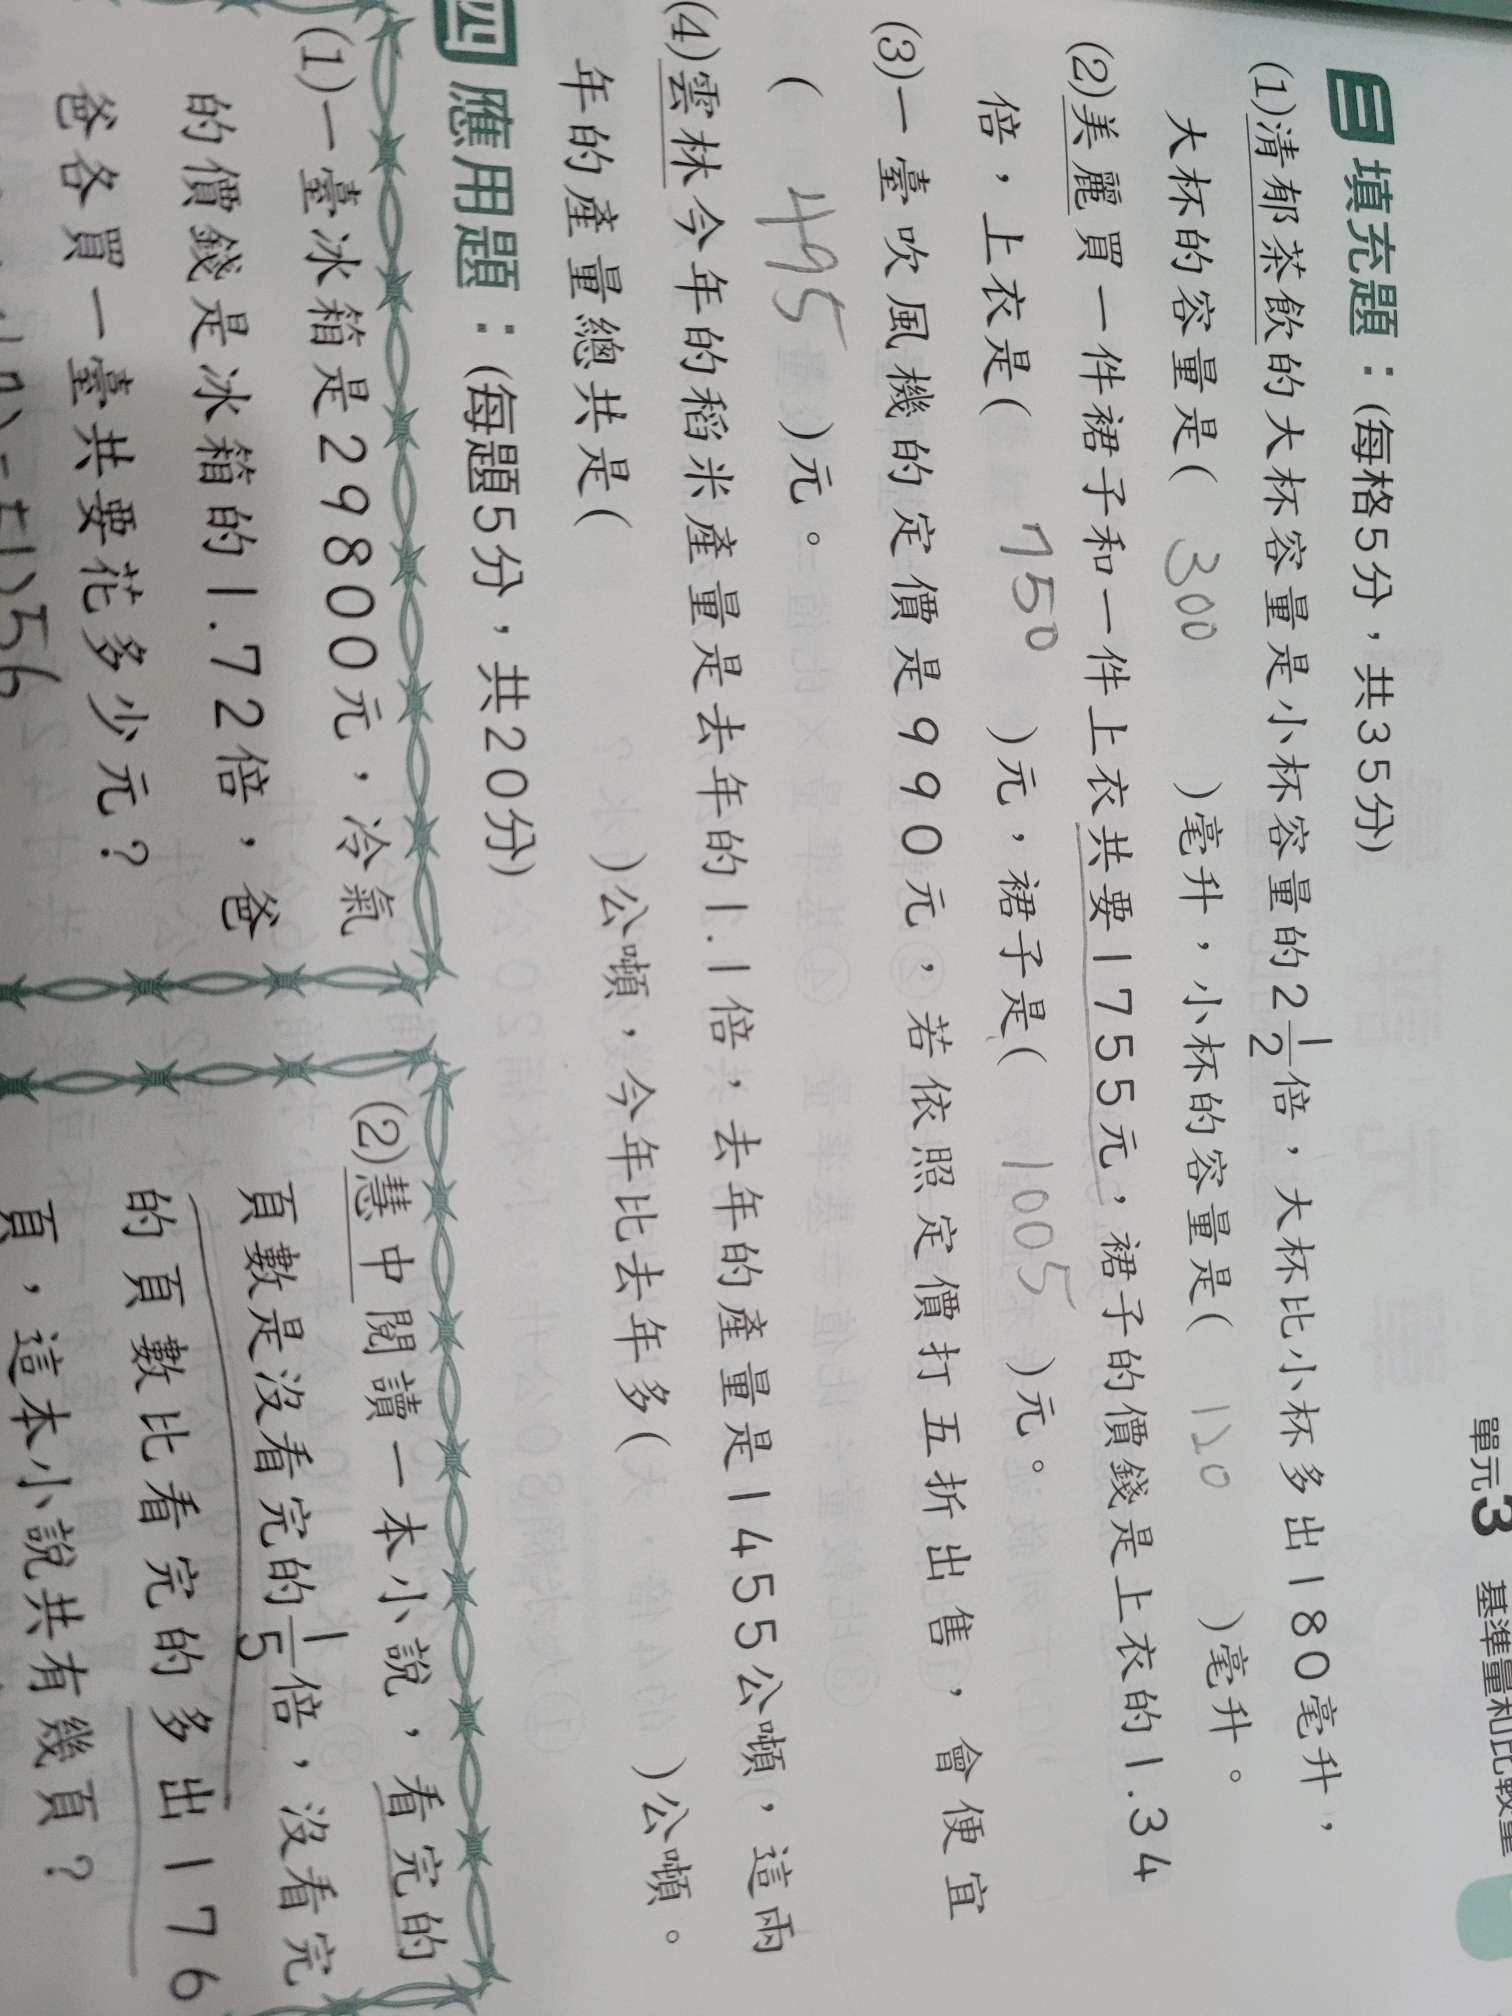 單元3 基準量和比較量
三 填充題：(每格5分，共35分)
(1)清郁茶飲的大杯容量是小杯容量的2 1/2倍，大杯比小杯多出180毫升，
大杯的容量是( 300 )毫升，小杯的容量是( 120 )毫升。
(2)美麗買一件裙子和一件上衣共要1755元，裙子的價錢是上衣的1.34
倍，上衣是( 750 )元，裙子是( 1005 )元。
(3)一臺吹風機的定價是990元，若依照定價打五折出售，會便宜
( 495 )元。
(4)雲林今年的稻米產量是去年的1.1倍，去年的產量是1455公噸，這兩
年的產量總共是( )公噸，今年比去年多( )公噸。
四 應用題：(每題5分，共20分)
(1)一臺冰箱是29800元，冷氣
的價錢是冰箱的1.72倍，爸
爸各買一臺共要花多少元？
(2)慧中閱讀一本小說，看完的
頁數是沒看完的1/5倍，沒看完
的頁數比看完的多出176
頁，這本小說共有幾頁？